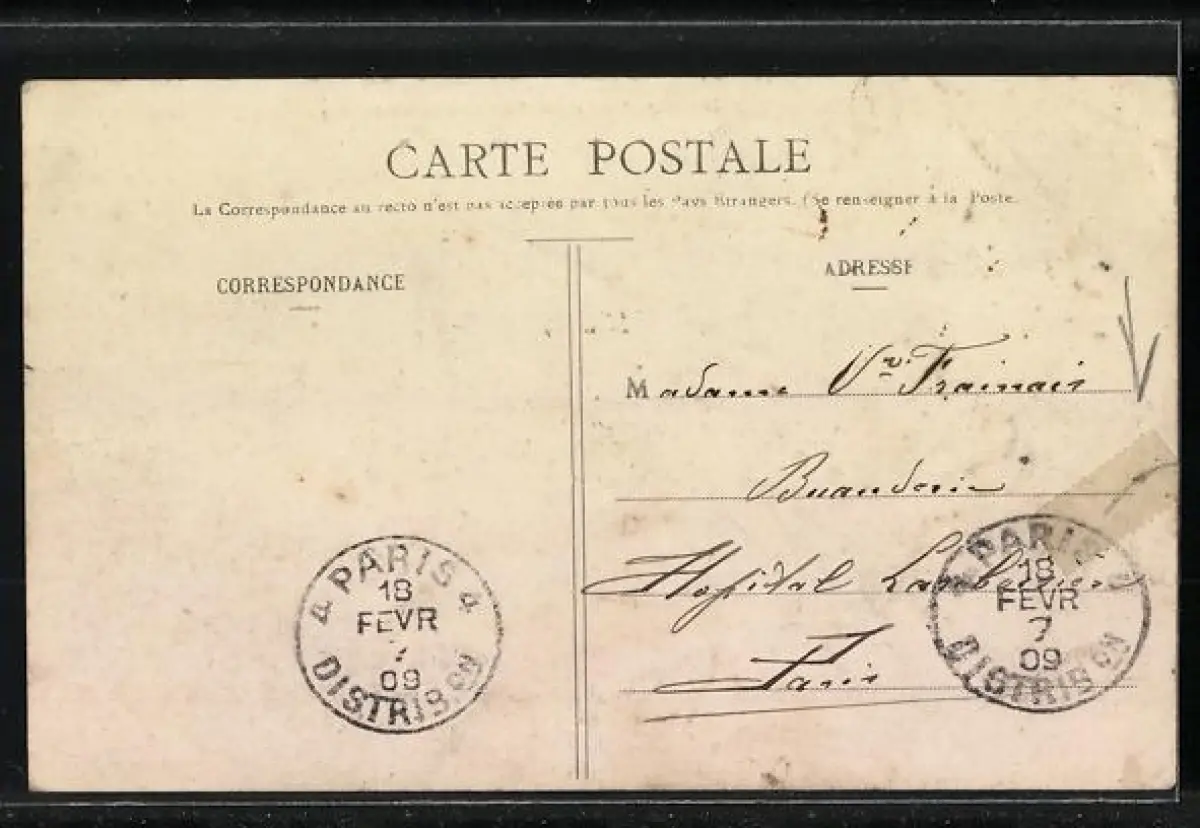 CARTE POSTALE
La Correspondance au recto n'est pas acceptée par tous les Pays Etrangers. (Se renseigner à la Poste.
CORRESPONDANCE
ADRESSE
Madame Vve Frainais
Buanderie
Hopital
Paris
4 PARIS 4
18
FEVR
7
09
DISTRIB.ON
PARIS
18
FEVR
7
09
DISTRIB.ON